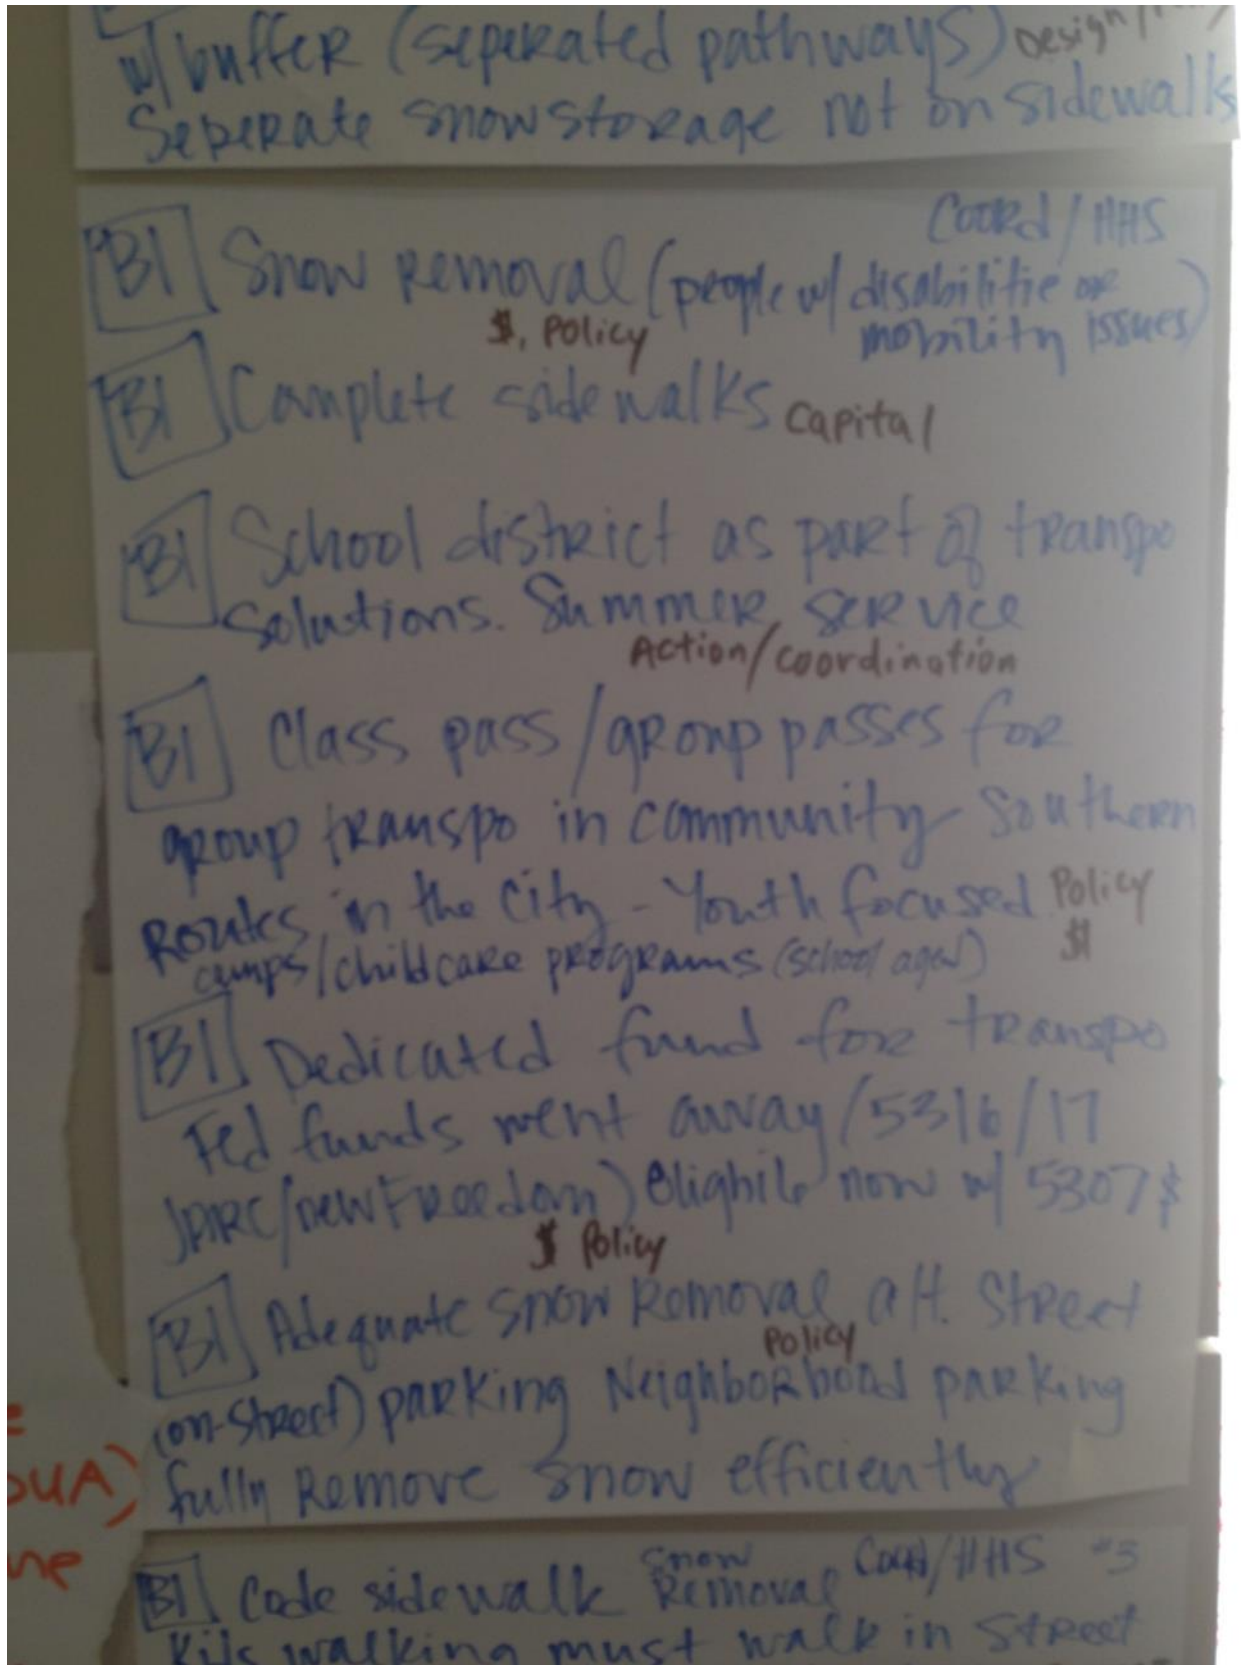 w/ buffer (seperated pathways) Design/
Seperate snow storage not on sidewalks
Coord/HHS
B1 Snow Removal (people w/ disabilitie or
mobility issues)
$, Policy
B1 Complete sidewalks Capital
B1 School district as part of transpo
solutions. Summer service
Action/coordination
B1 Class pass/group passes for
group transpo in community Southern
Routes in the City - Youth focused Policy
$
camps/childcare programs (school aged)
B1 Dedicated fund for transpo
Fed funds went away (5316/17
JARC/new Freedom) Eligible now w/ 5307 $
$ Policy
B1 Adequate snow Removal alt. Street
Policy
(on-street) parking Neighborhood parking
fully Remove snow efficiently
OUA)
B1 Code sidewalk snow Removal Coord/HHS #3
Kids walking must walk in Street